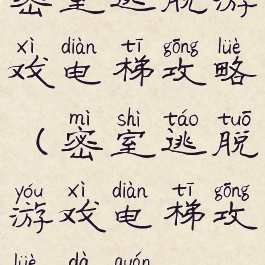 密室逃脱游
xì diàn tī gōng lüè
戏电梯攻略
mì shì táo tuō
（密室逃脱
yóu xì diàn tī gōng
游戏电梯攻
lüè dà quán